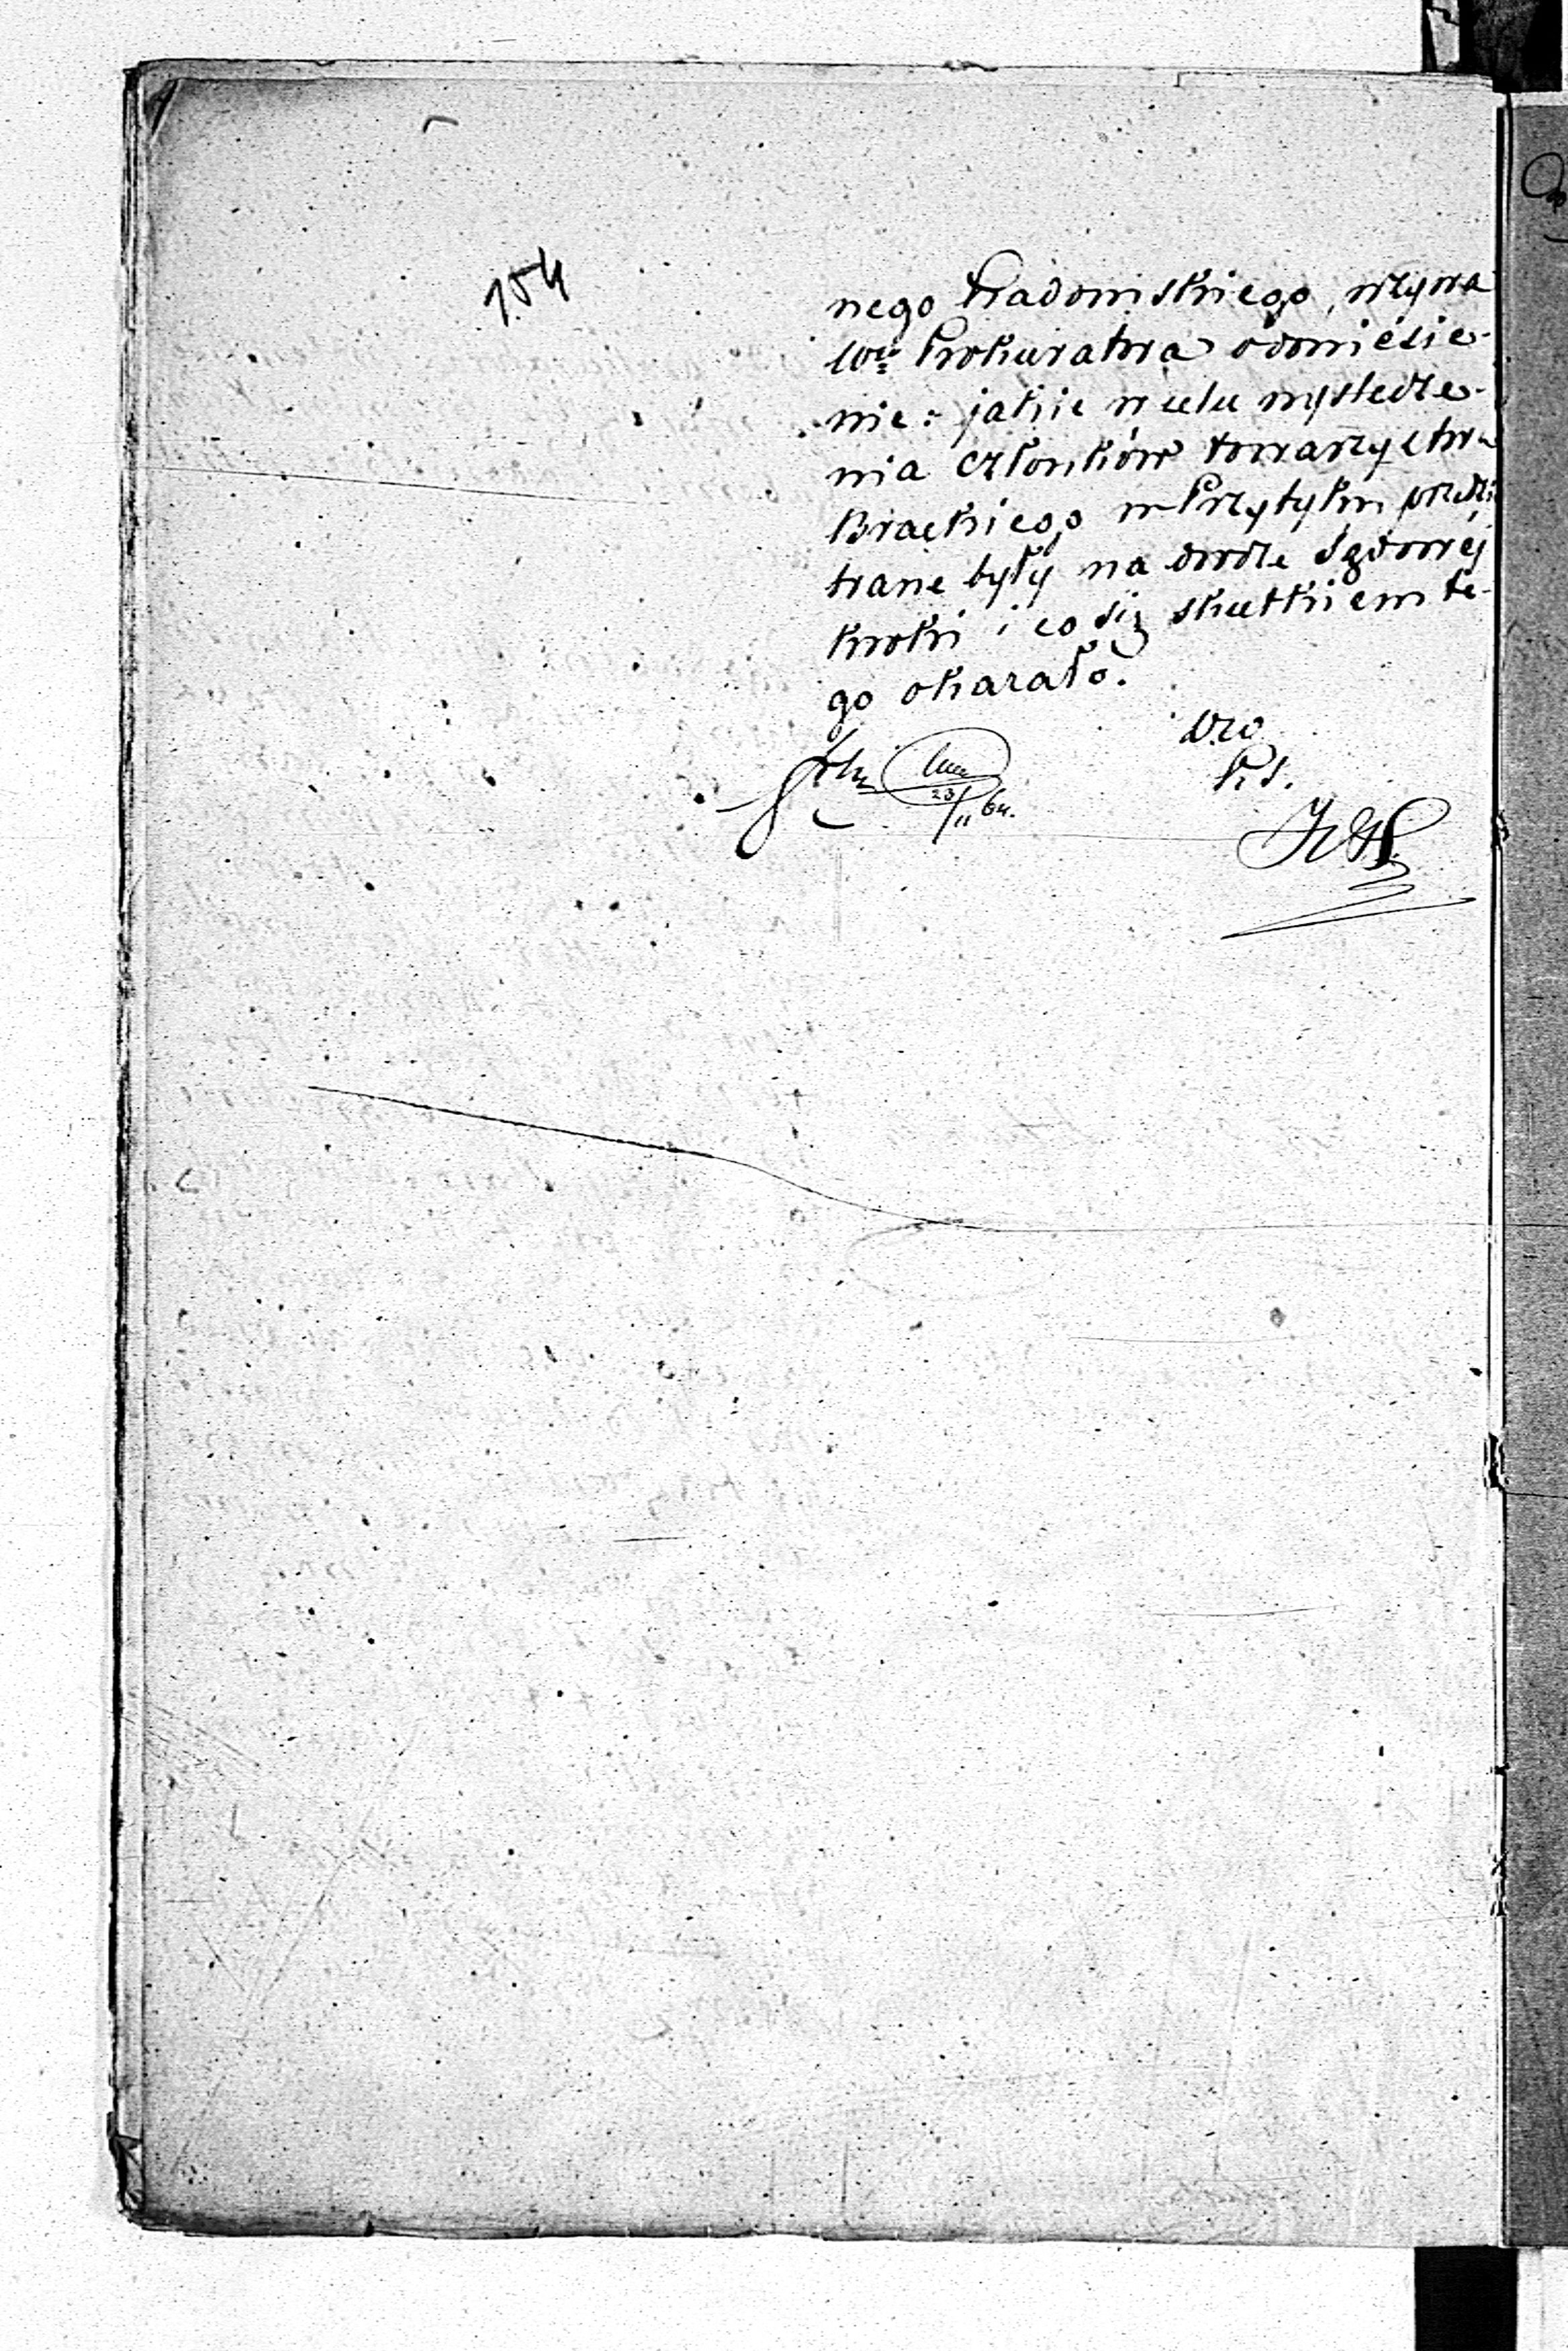 154
nego Radomskiego, wzywa
Wgo Prokuratora o doniesie-
nie: jakie w celu wyśledze-
nia członków towarzystwa
Brackiego w Przytyku przedsi
brane były na drodze sądowej
kroki i co się skutkiem te-
go okazało.
23/11 64.